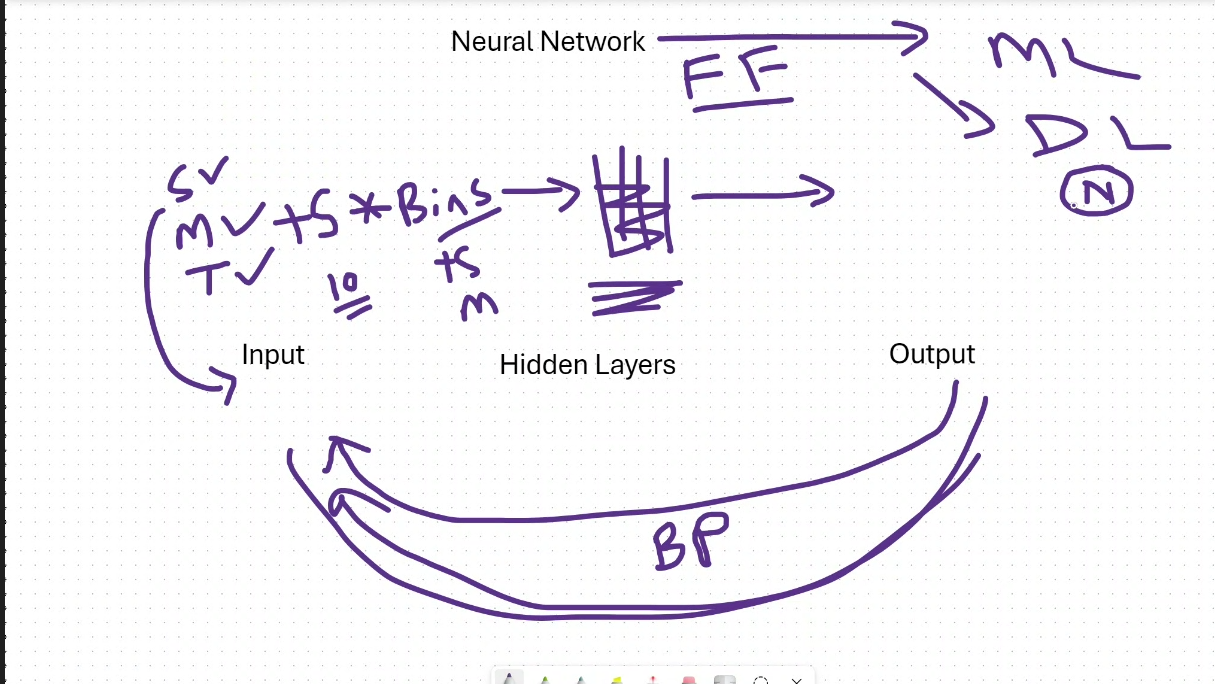 Neural Network
FF
ML
DL
N
S
M + S * Bins
T
10
+S
M
Input
Hidden Layers
Output
BP